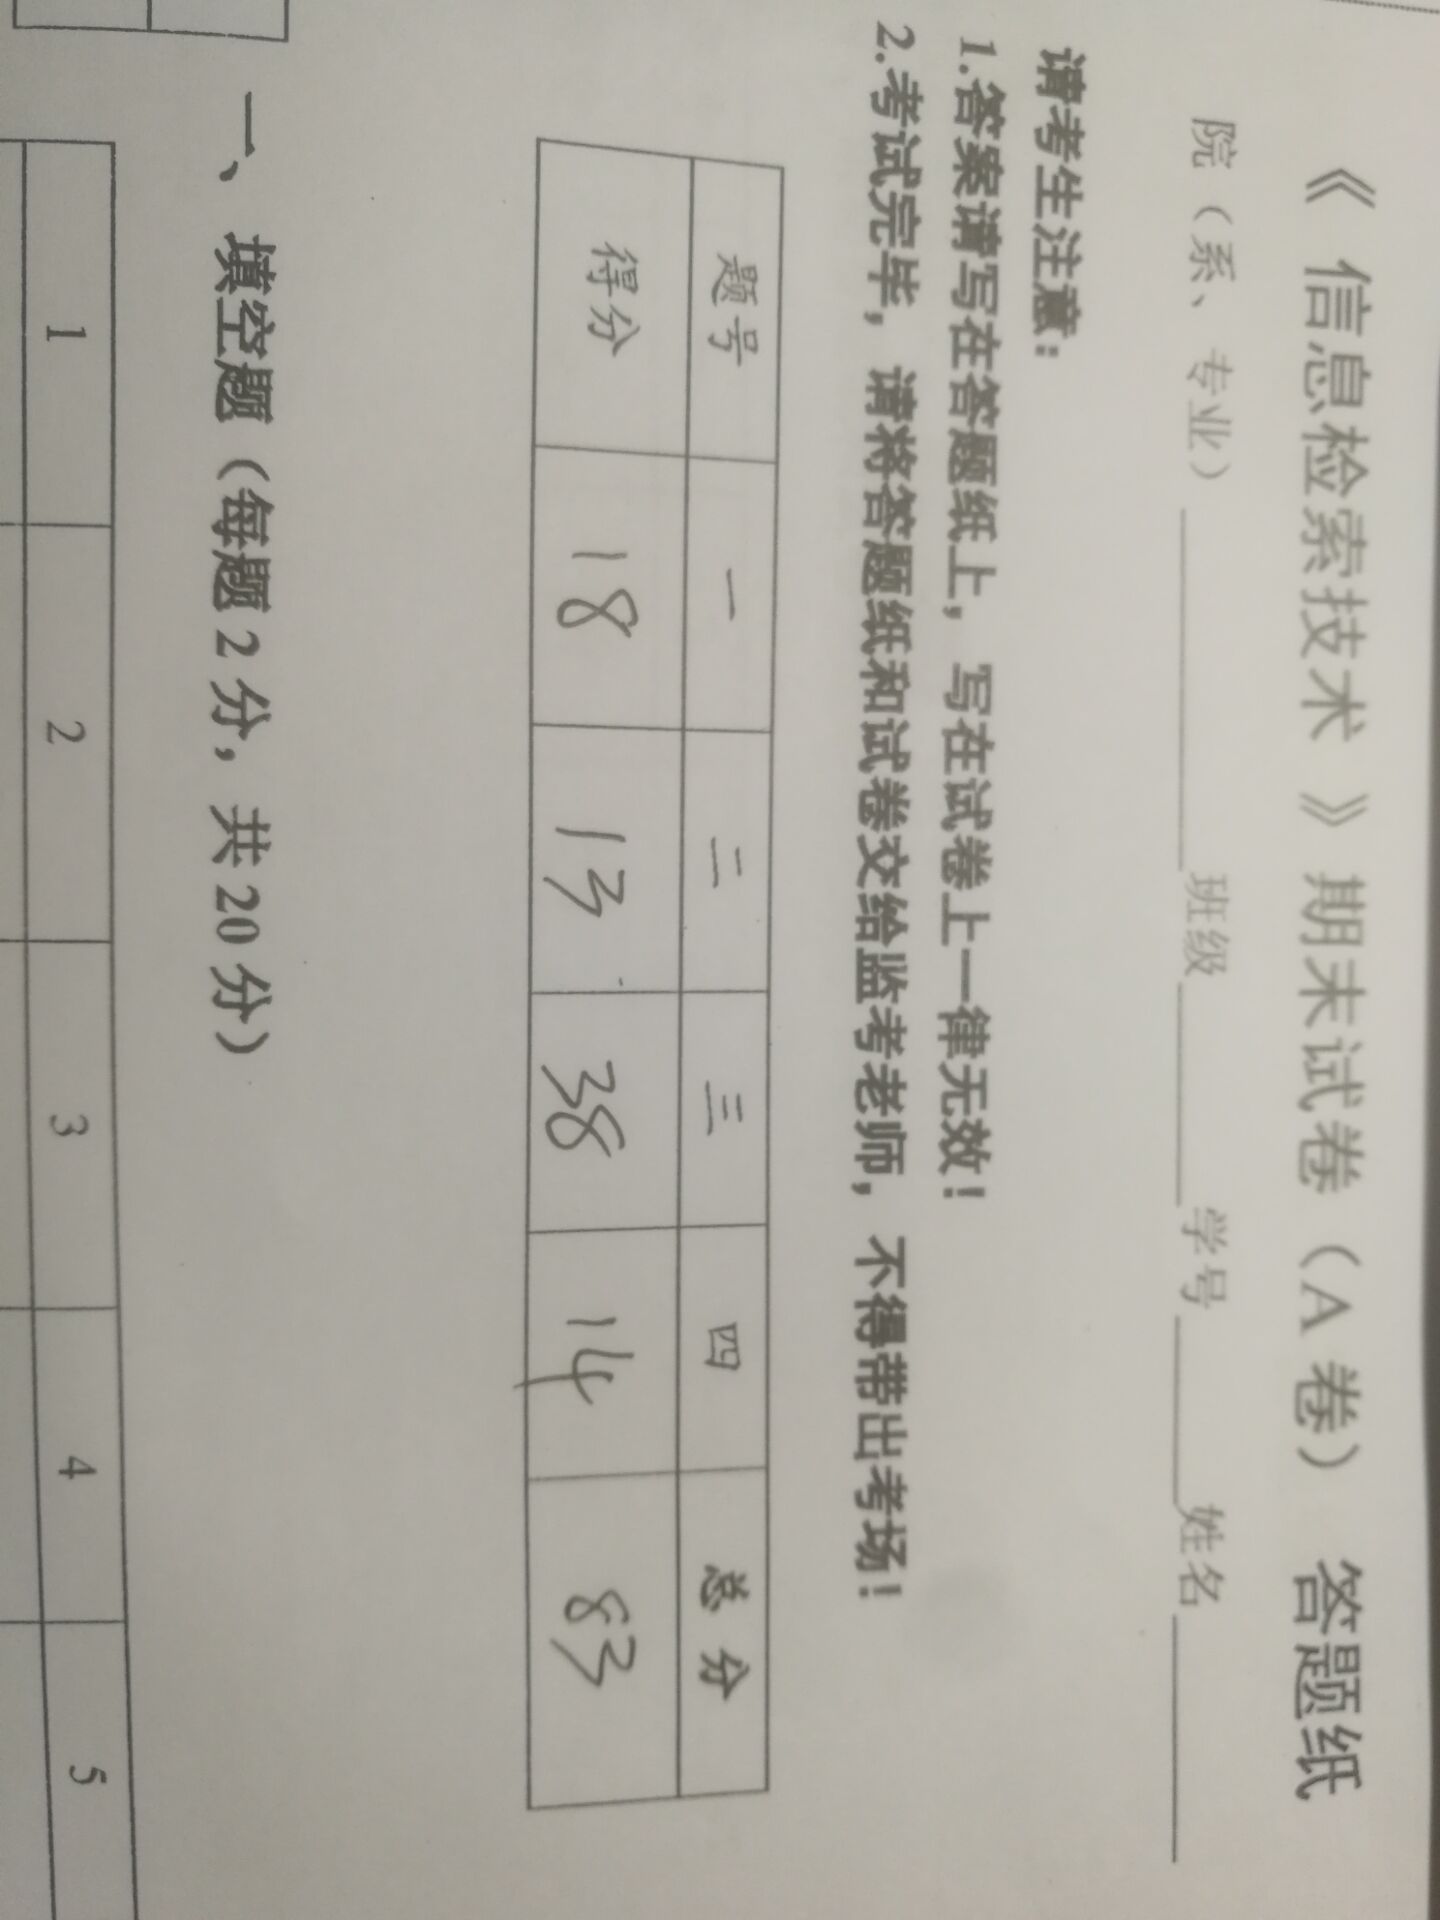 《 信息检索技术 》期末试卷（A 卷） 答题纸
院（系、专业）____________班级________学号______姓名________
请考生注意：
1.答案请写在答题纸上，写在试卷上一律无效！
2.考试完毕，请将答题纸和试卷交给监考老师，不得带出考场！
题号 一 二 三 四 总 分
得分 18 13 38 14 83
一、填空题（每题 2 分，共 20 分）
1 2 3 4 5